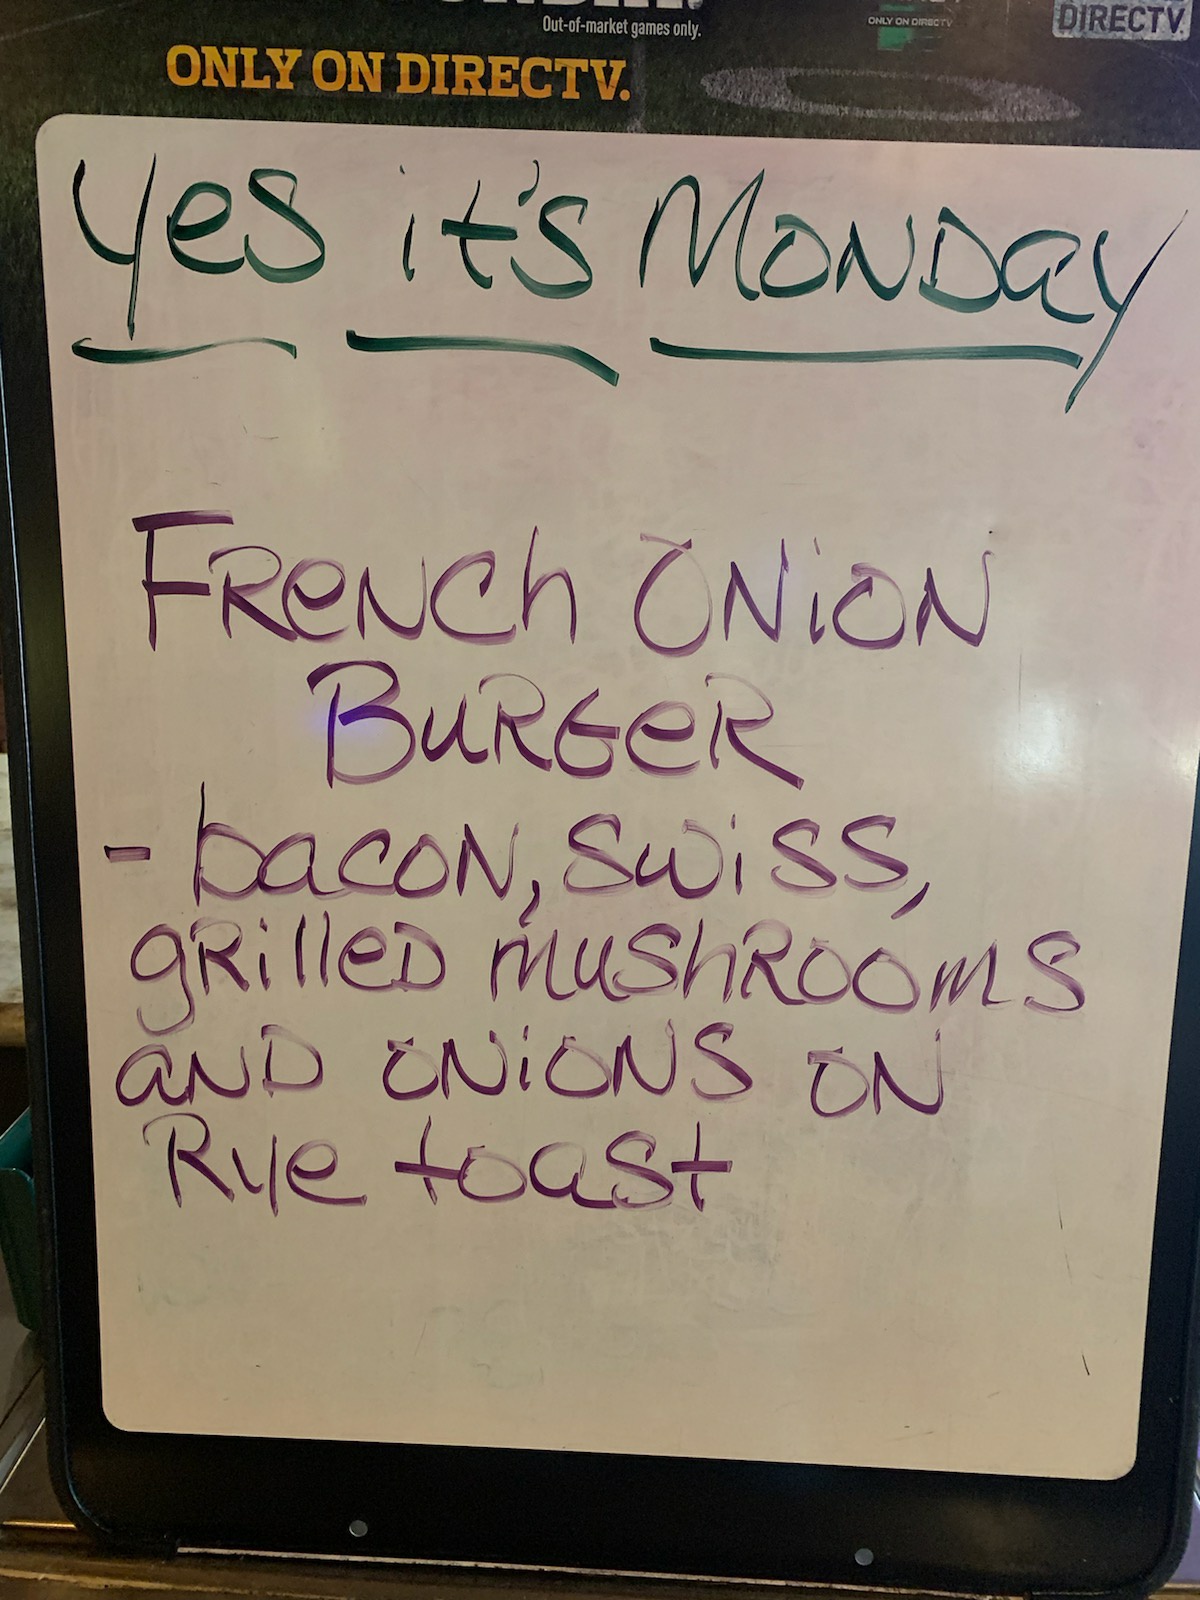 Out-of-market games only.
ONLY ON DIRECTV
DIRECTV
ONLY ON DIRECTV.
Yes it's Monday
French Onion
Burger
- bacon, swiss,
grilled mushrooms
and onions on
Rye toast